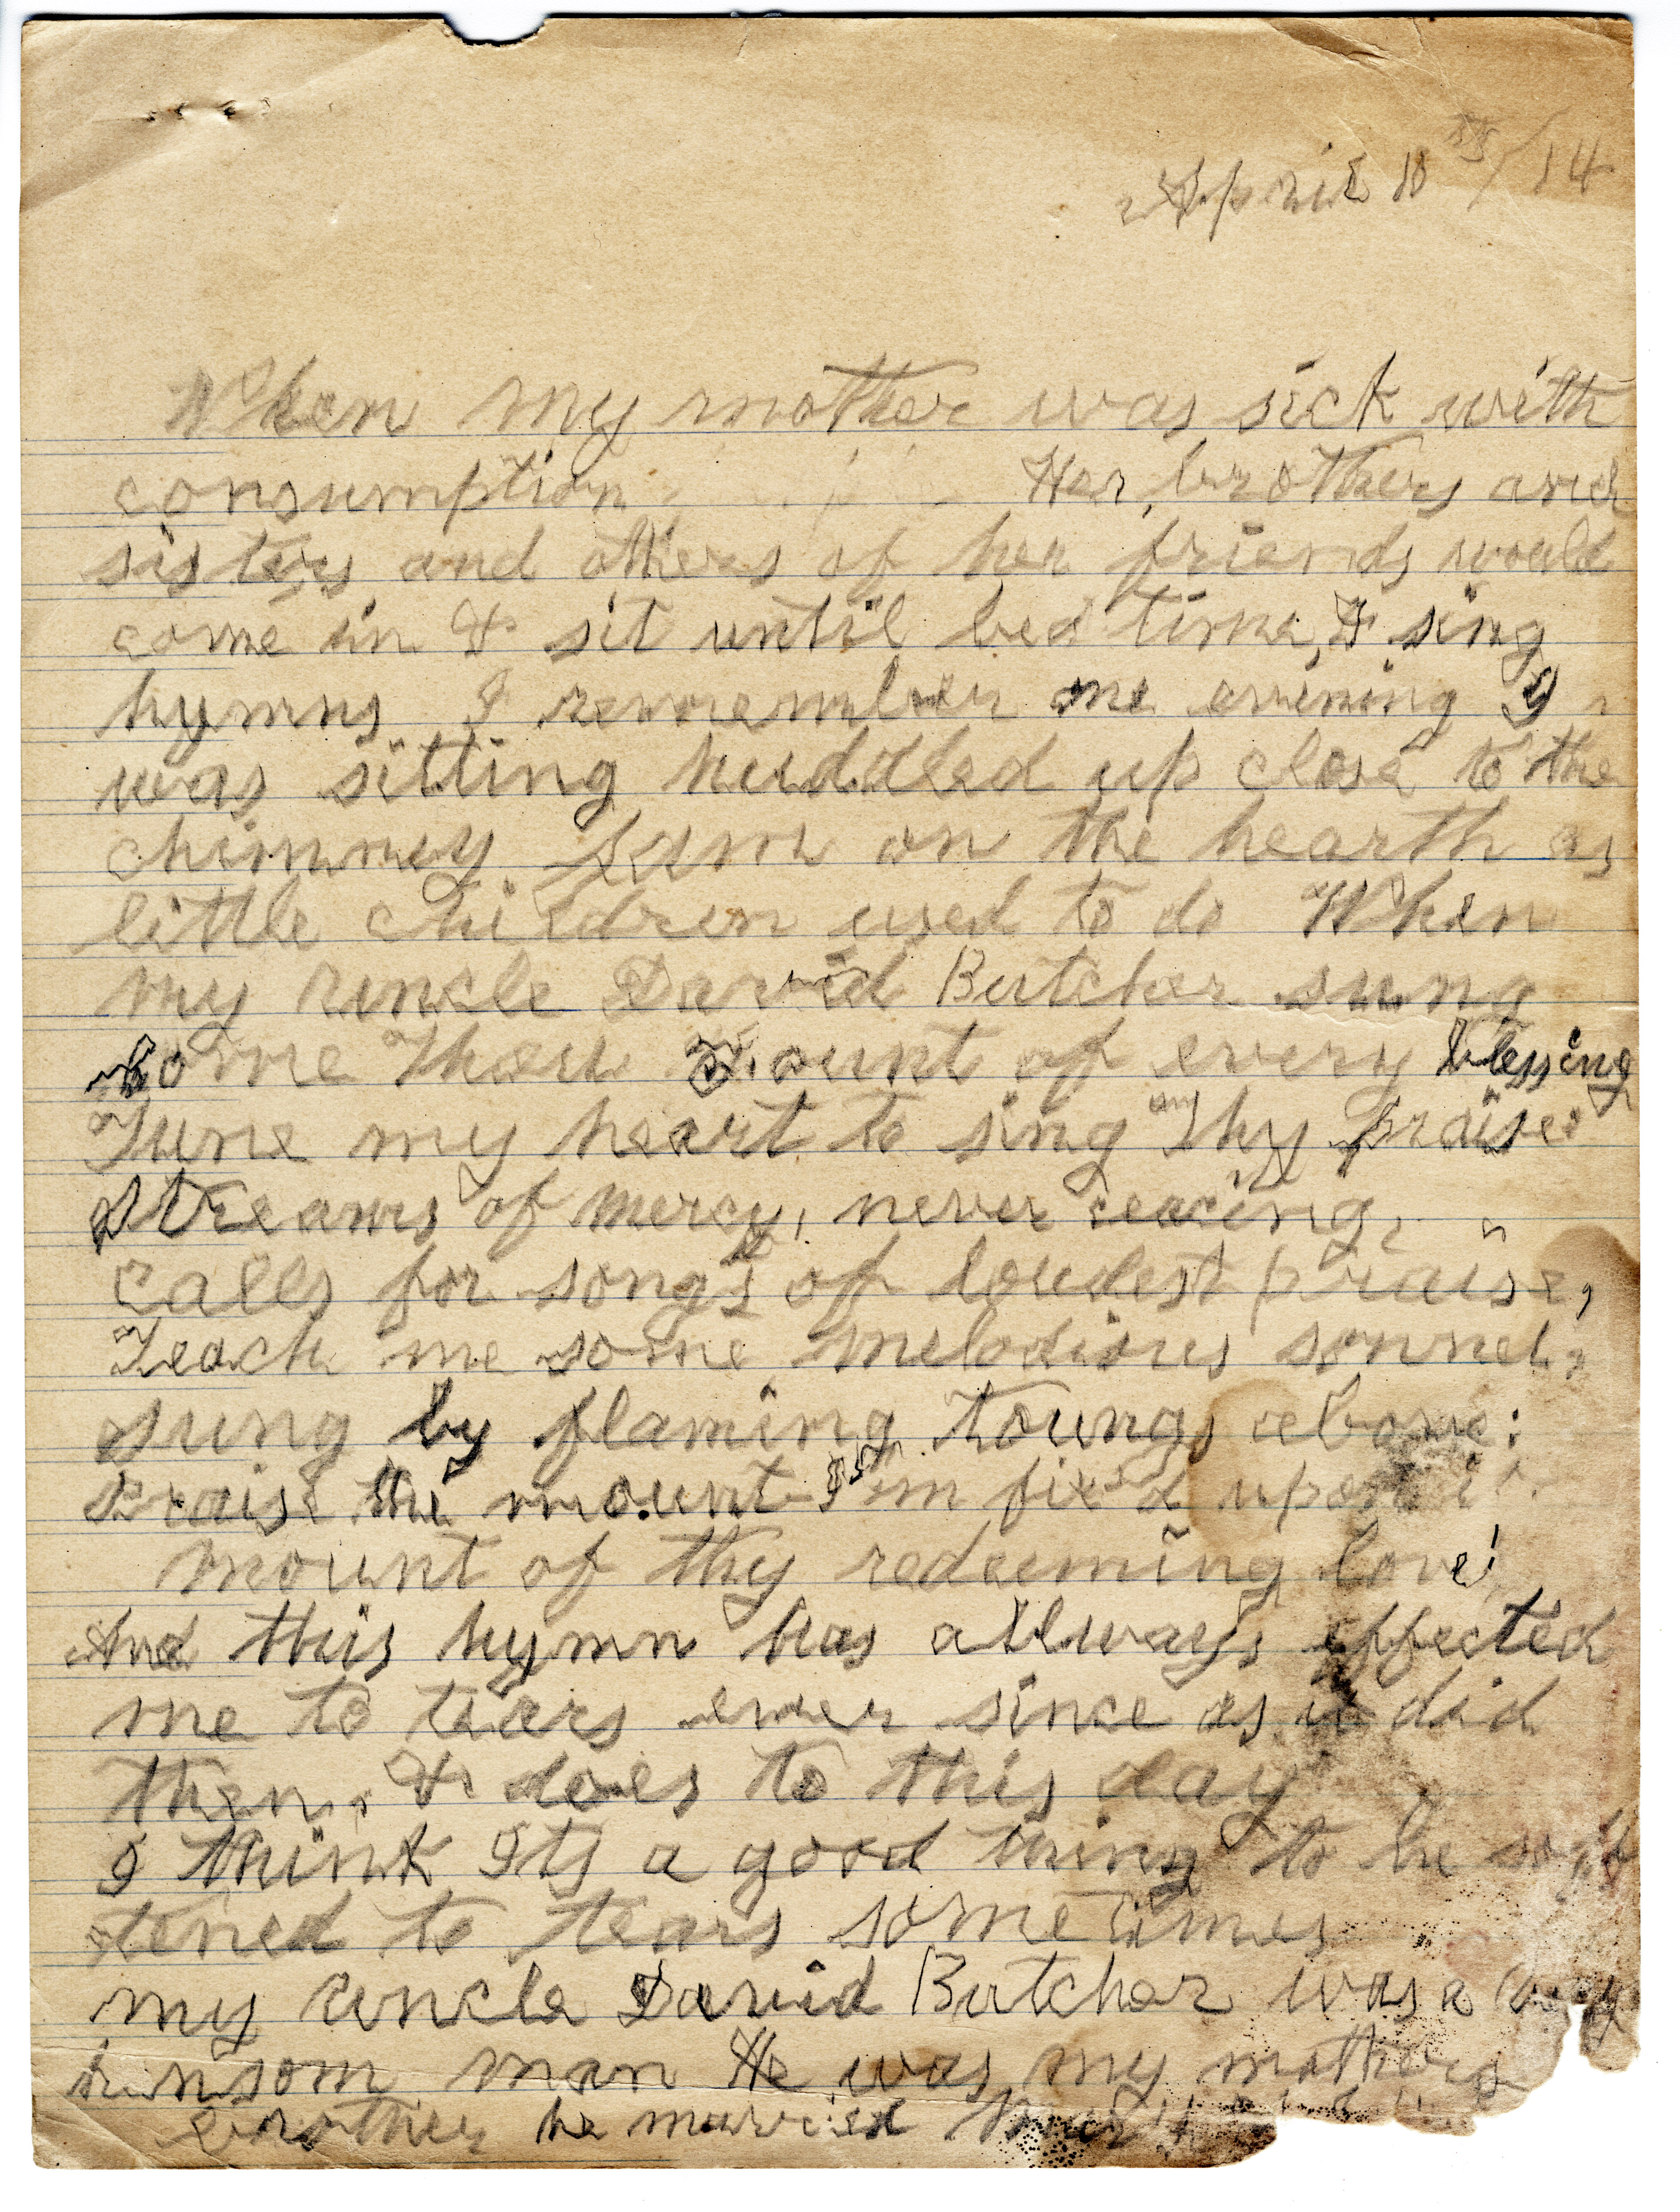 April 18 /14
When my mother was sick with
consumption Her brothers and
sisters and others of her friends would
come in & sit until bed time, & sing
hymns I remember one evening I
was sitting huddled up close to the
chimney on the hearth as
little children used to do When
my uncle David Butcher sung
Come Thou Fount of every blessing
Tune my heart to sing Thy praise:
Streams of mercy, never ceacing,
calls for songs of loudest praise,
Teach me some melodious sonnet,
sung by flaming toungs above:
Praise the mount I'm fix'd upon it
mount of thy redeeming love!
And this hymn has allways effected
me to tears ever since as it did
then, & does to this day
I think Its a good thing to be sof
tened to tears sometimes
my uncle David Butcher was a very
hansom man He was my mothers
brother he married